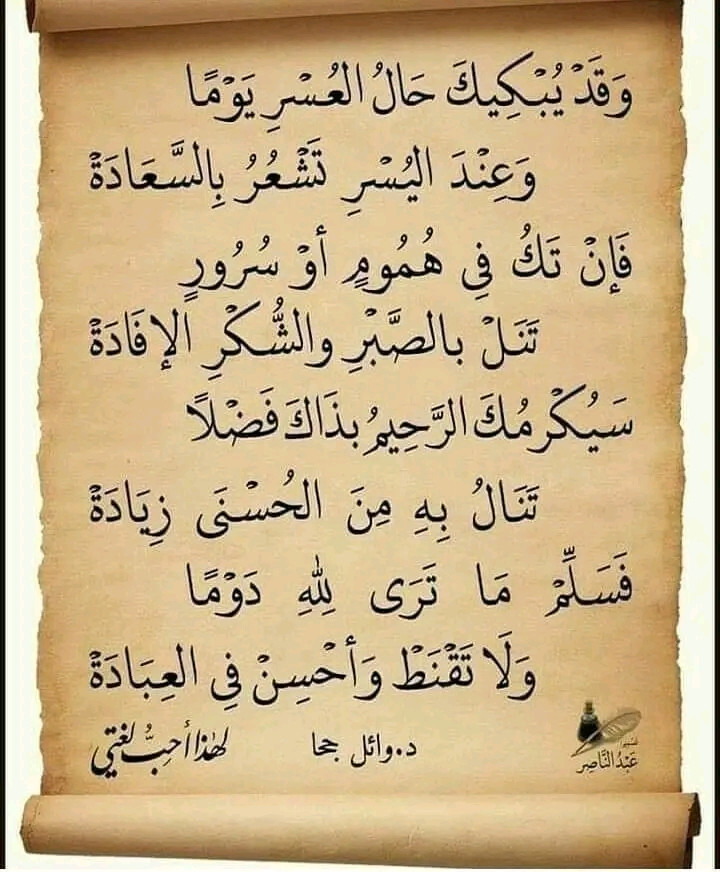 وَقَدْ يُبْكِيكَ حَالُ العُسْرِ يَوْمًا
وَعِنْدَ اليُسْرِ تَشْعُرُ بِالسَّعَادَةْ
فَإنْ تَكُ فِي هُمُومٍ أوْ سُرُورٍ
تَنَلْ بالصَّبْرِ والشُّكْرِ الإفَادَةْ
سَيُكْرِمُكَ الرَّحِيمُ بذَاكَ فَضْلًا
تَنَالُ بِهِ مِنَ الحُسْنَى زِيَادَةْ
فَسَلِّمْ مَا تَرَى لِلهِ دَوْمًا
وَلَا تَقْنَطْ وَأحْسِنْ فِي العِبَادَةْ
د.وائل جحا
لهٰذا أحِبُّ لغتي
عَبْدُ النَّاصِر